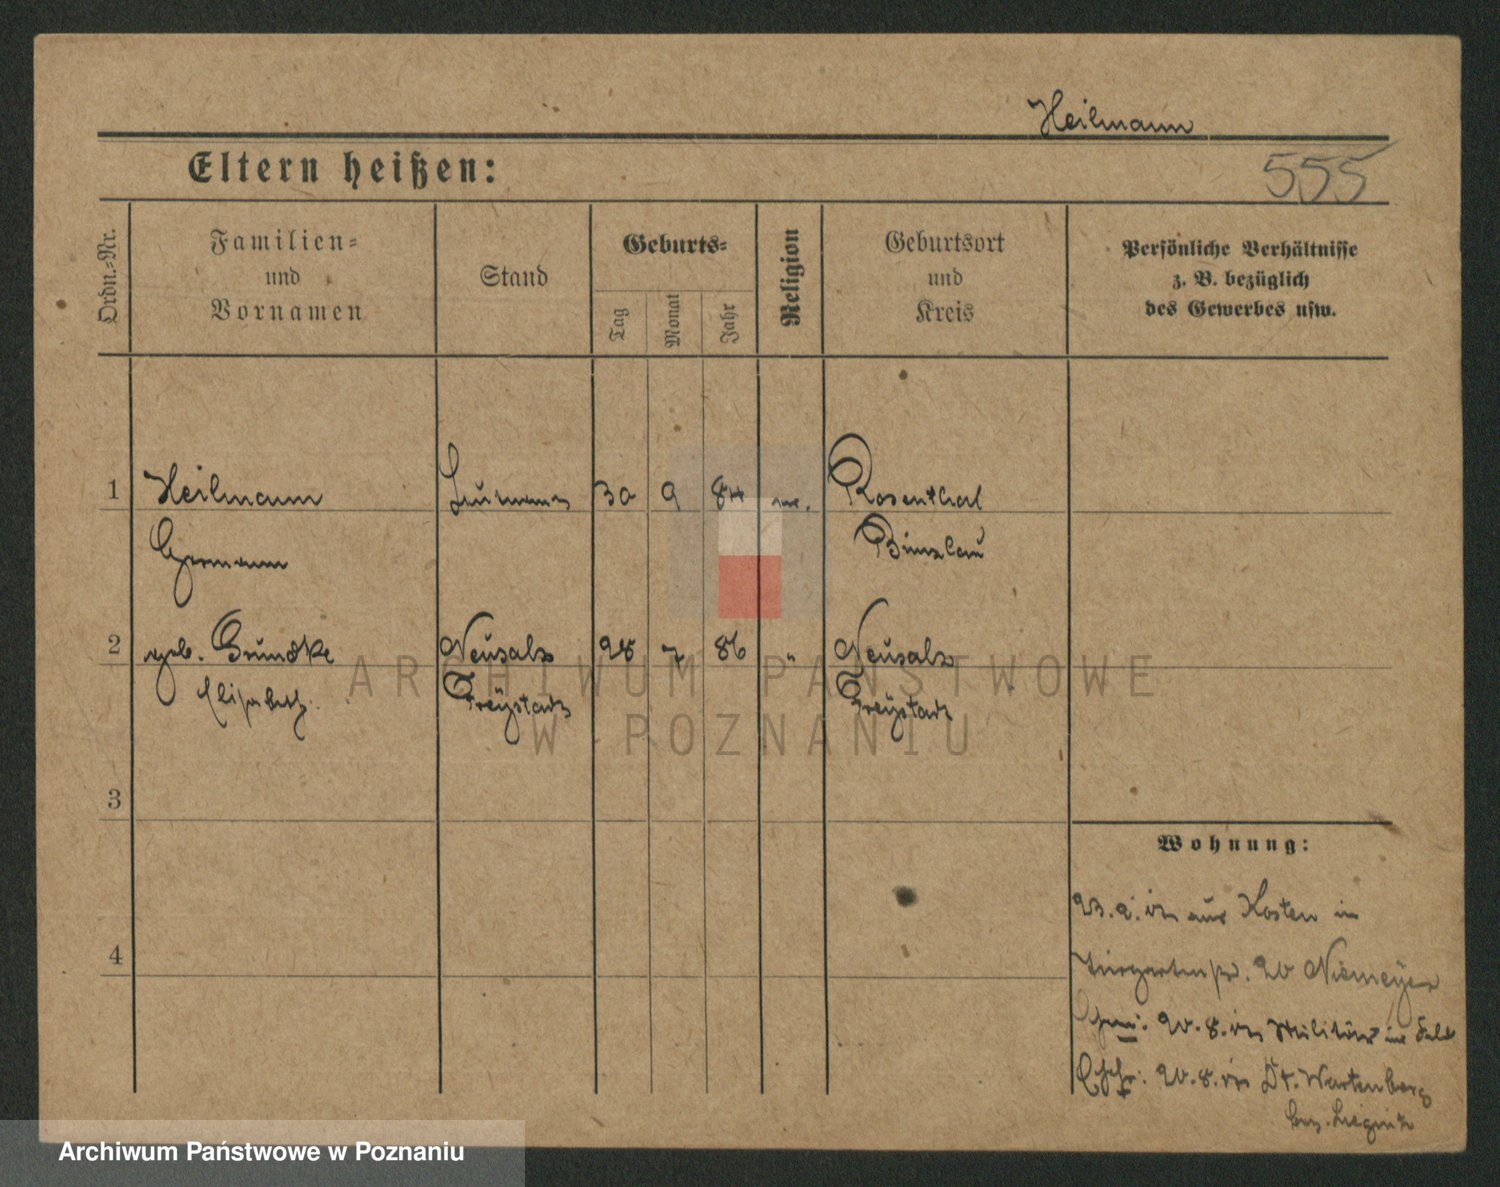 Heilmann
Eltern heißen:
555
Ordn.-Nr.
Familien-
und
Vornamen
Stand
Geburts-
Tag
Monat
Jahr
Religion
Geburtsort
und
Kreis
Persönliche Verhältnisse
z. B. bezüglich
des Gewerbes usw.
1 Heilmann 30 9 84 Rosenthal
Hermann Bunzlau
2 geb. Gundke Neusalz 28 7 86 " Neusalz
Elisabeth Freystadt Freystadt
ARCHIWUM PAŃSTWOWE
W POZNANIU
3
Wohnung:
4
23. 2. aus Kosten in
Tiergartenstr. 20 Niemeyer
20. 8. Militär im Feld
Ehefr: 20. 8. Dt. Wartenberg
bez. Liegnitz
Archiwum Państwowe w Poznaniu